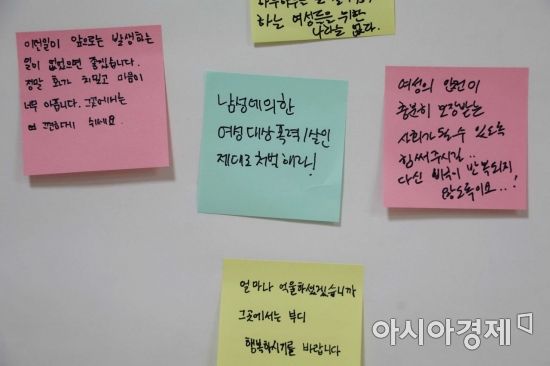 하는 여성들은 위한
나라는 없다.
이런일이 앞으로는 발생하는
일이 없었으면 좋겠습니다.
정말 화가 치밀고 마음이
너무 아픕니다. 그곳에서는
편하게 쉬세요.
남성에 의한
여성 대상 폭력/살인
제대로 처벌해라!
여성의 인권이
충분히 보장받는
사회가 될 수 있도록
힘써주시길..
다신 비극이 반복되지
않도록이요..!
얼마나 억울하셨겠습니까
그곳에서는 부디
행복하시기를 바랍니다
아시아경제